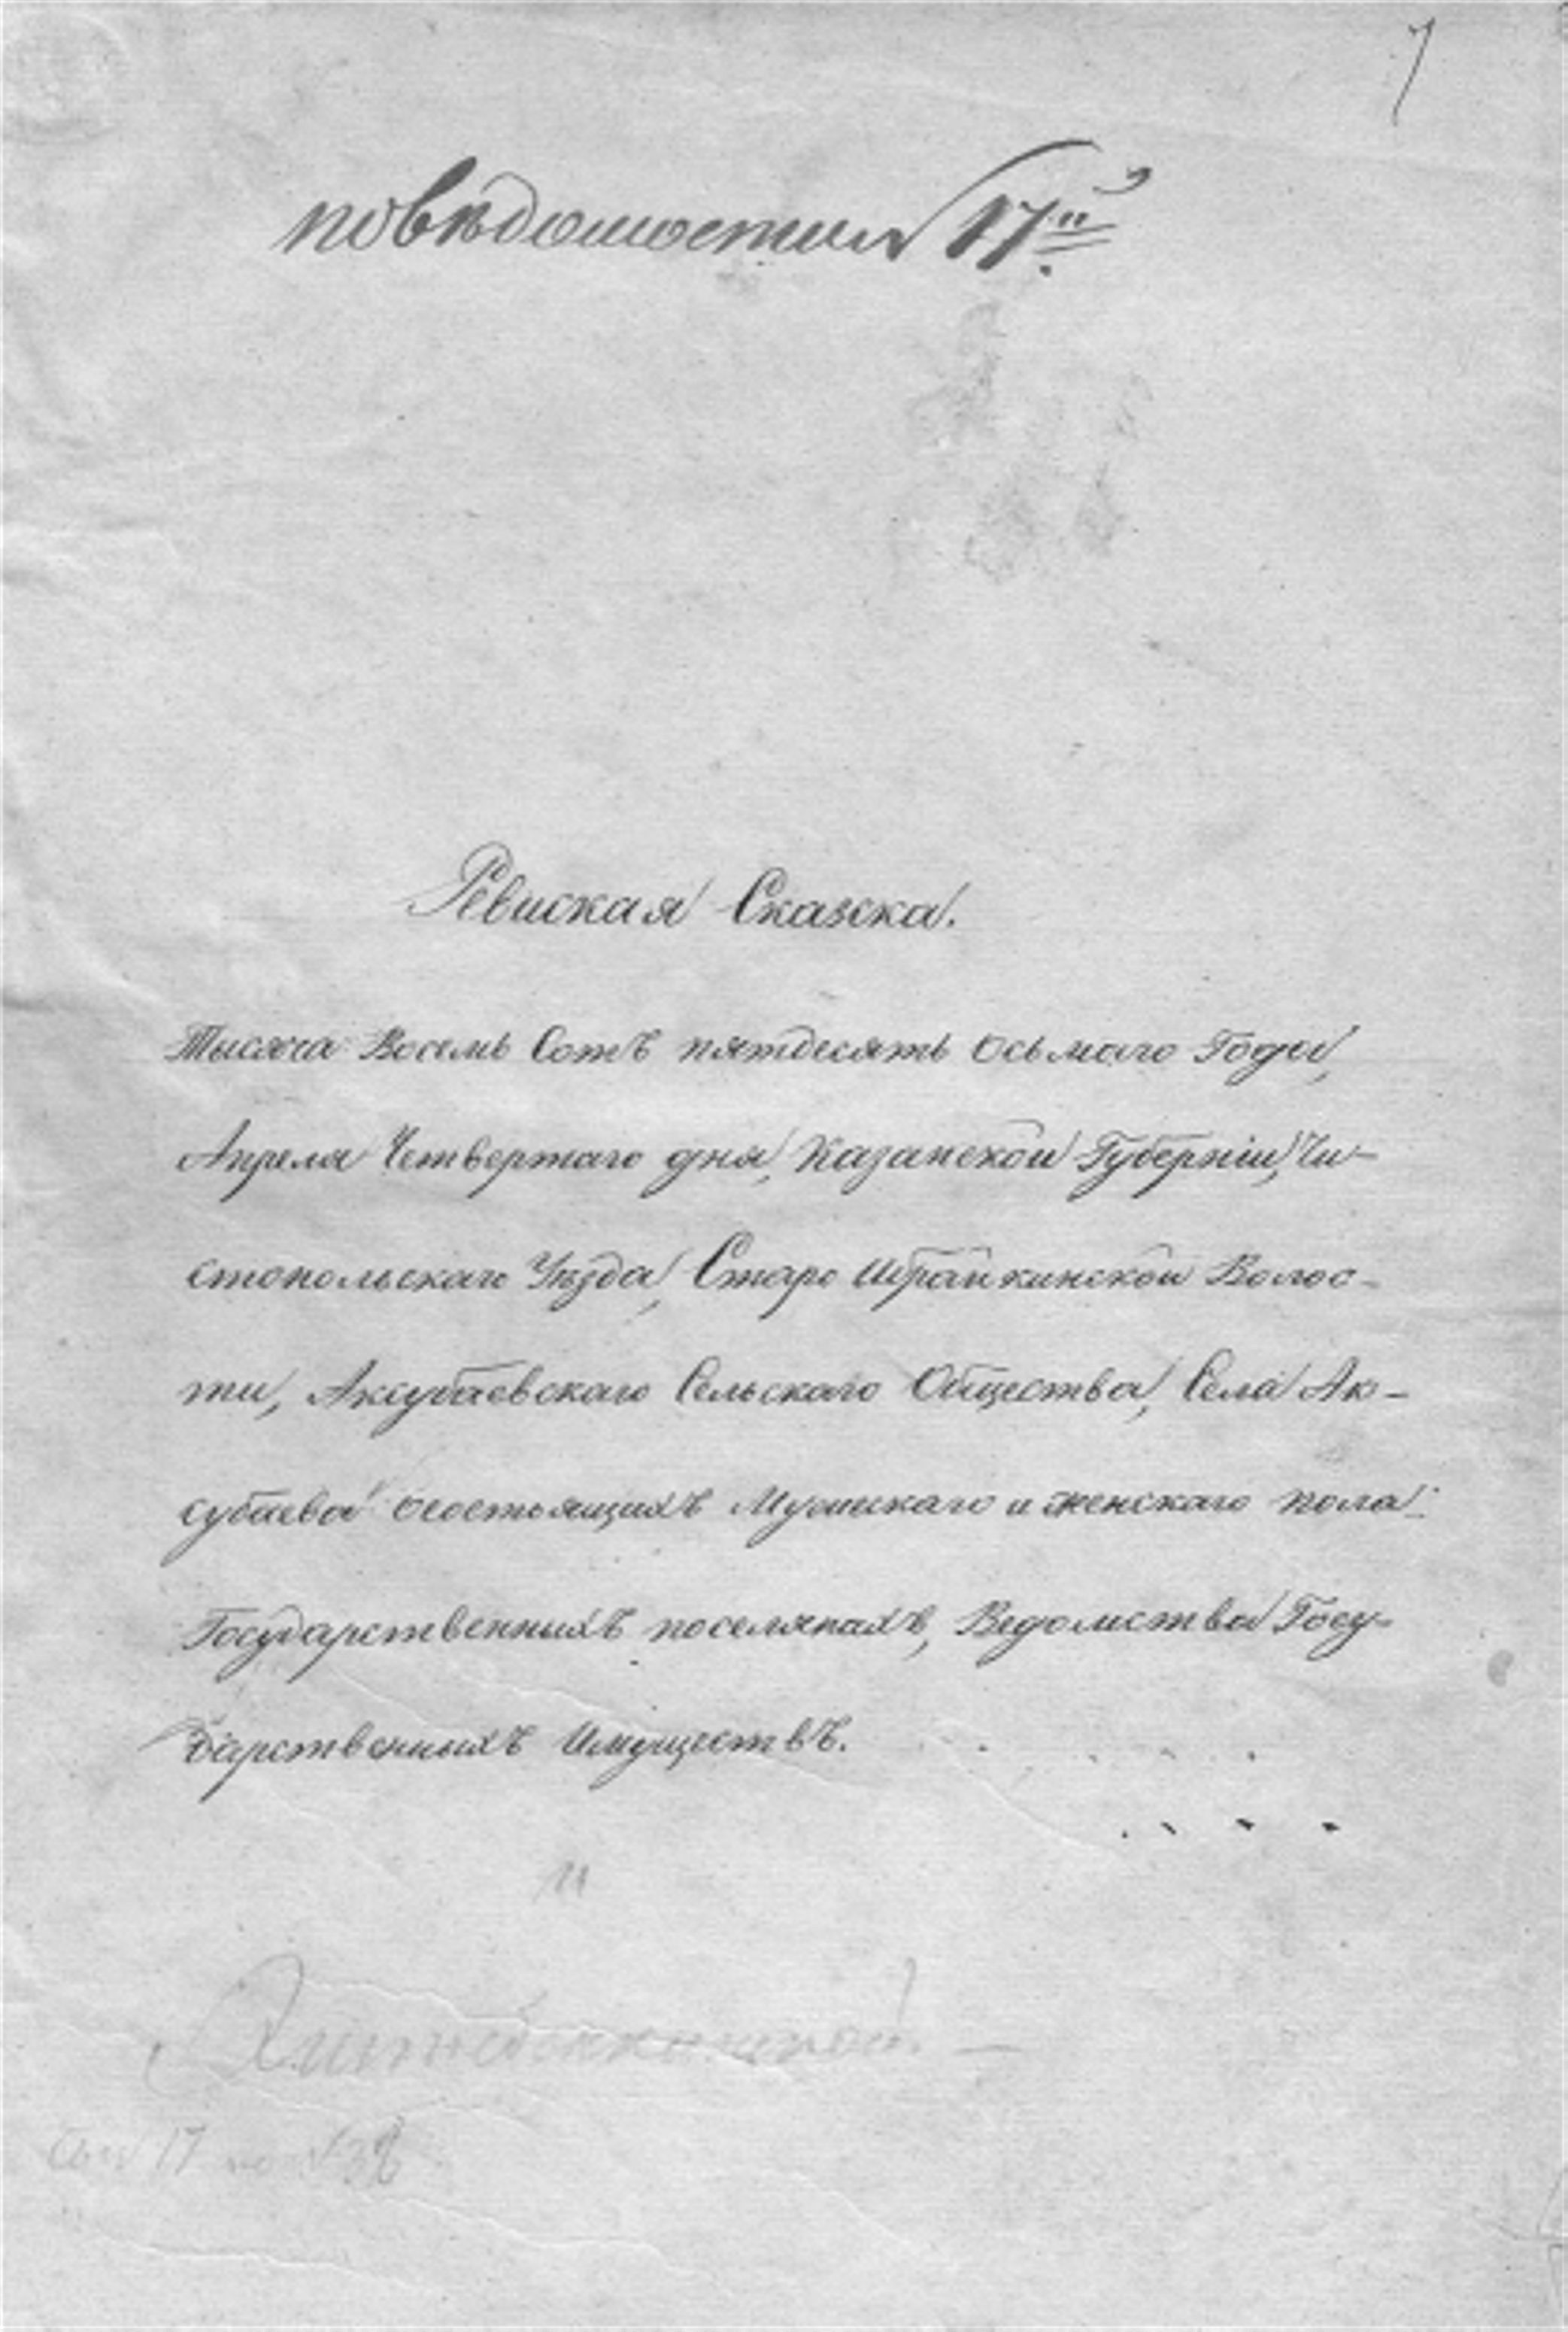 7
по вѣдомости 17й
Ревиская Сказка.
Тысяча Восемь Сотъ пятдесять Осьмаго Года,
Апреля Четвертаго дня, Казанской Губерніи, Чи-
стопольскаго Уѣзда, Старо Ибрайкинской Волос-
ти, Аксубаевскаго Сельскаго Общества, Села Ак-
субаева осостьящихъ Мужскаго и женскаго пола:
Государственныхъ поселянахъ, Ведомства Госу-
дарственныхъ Имуществъ.